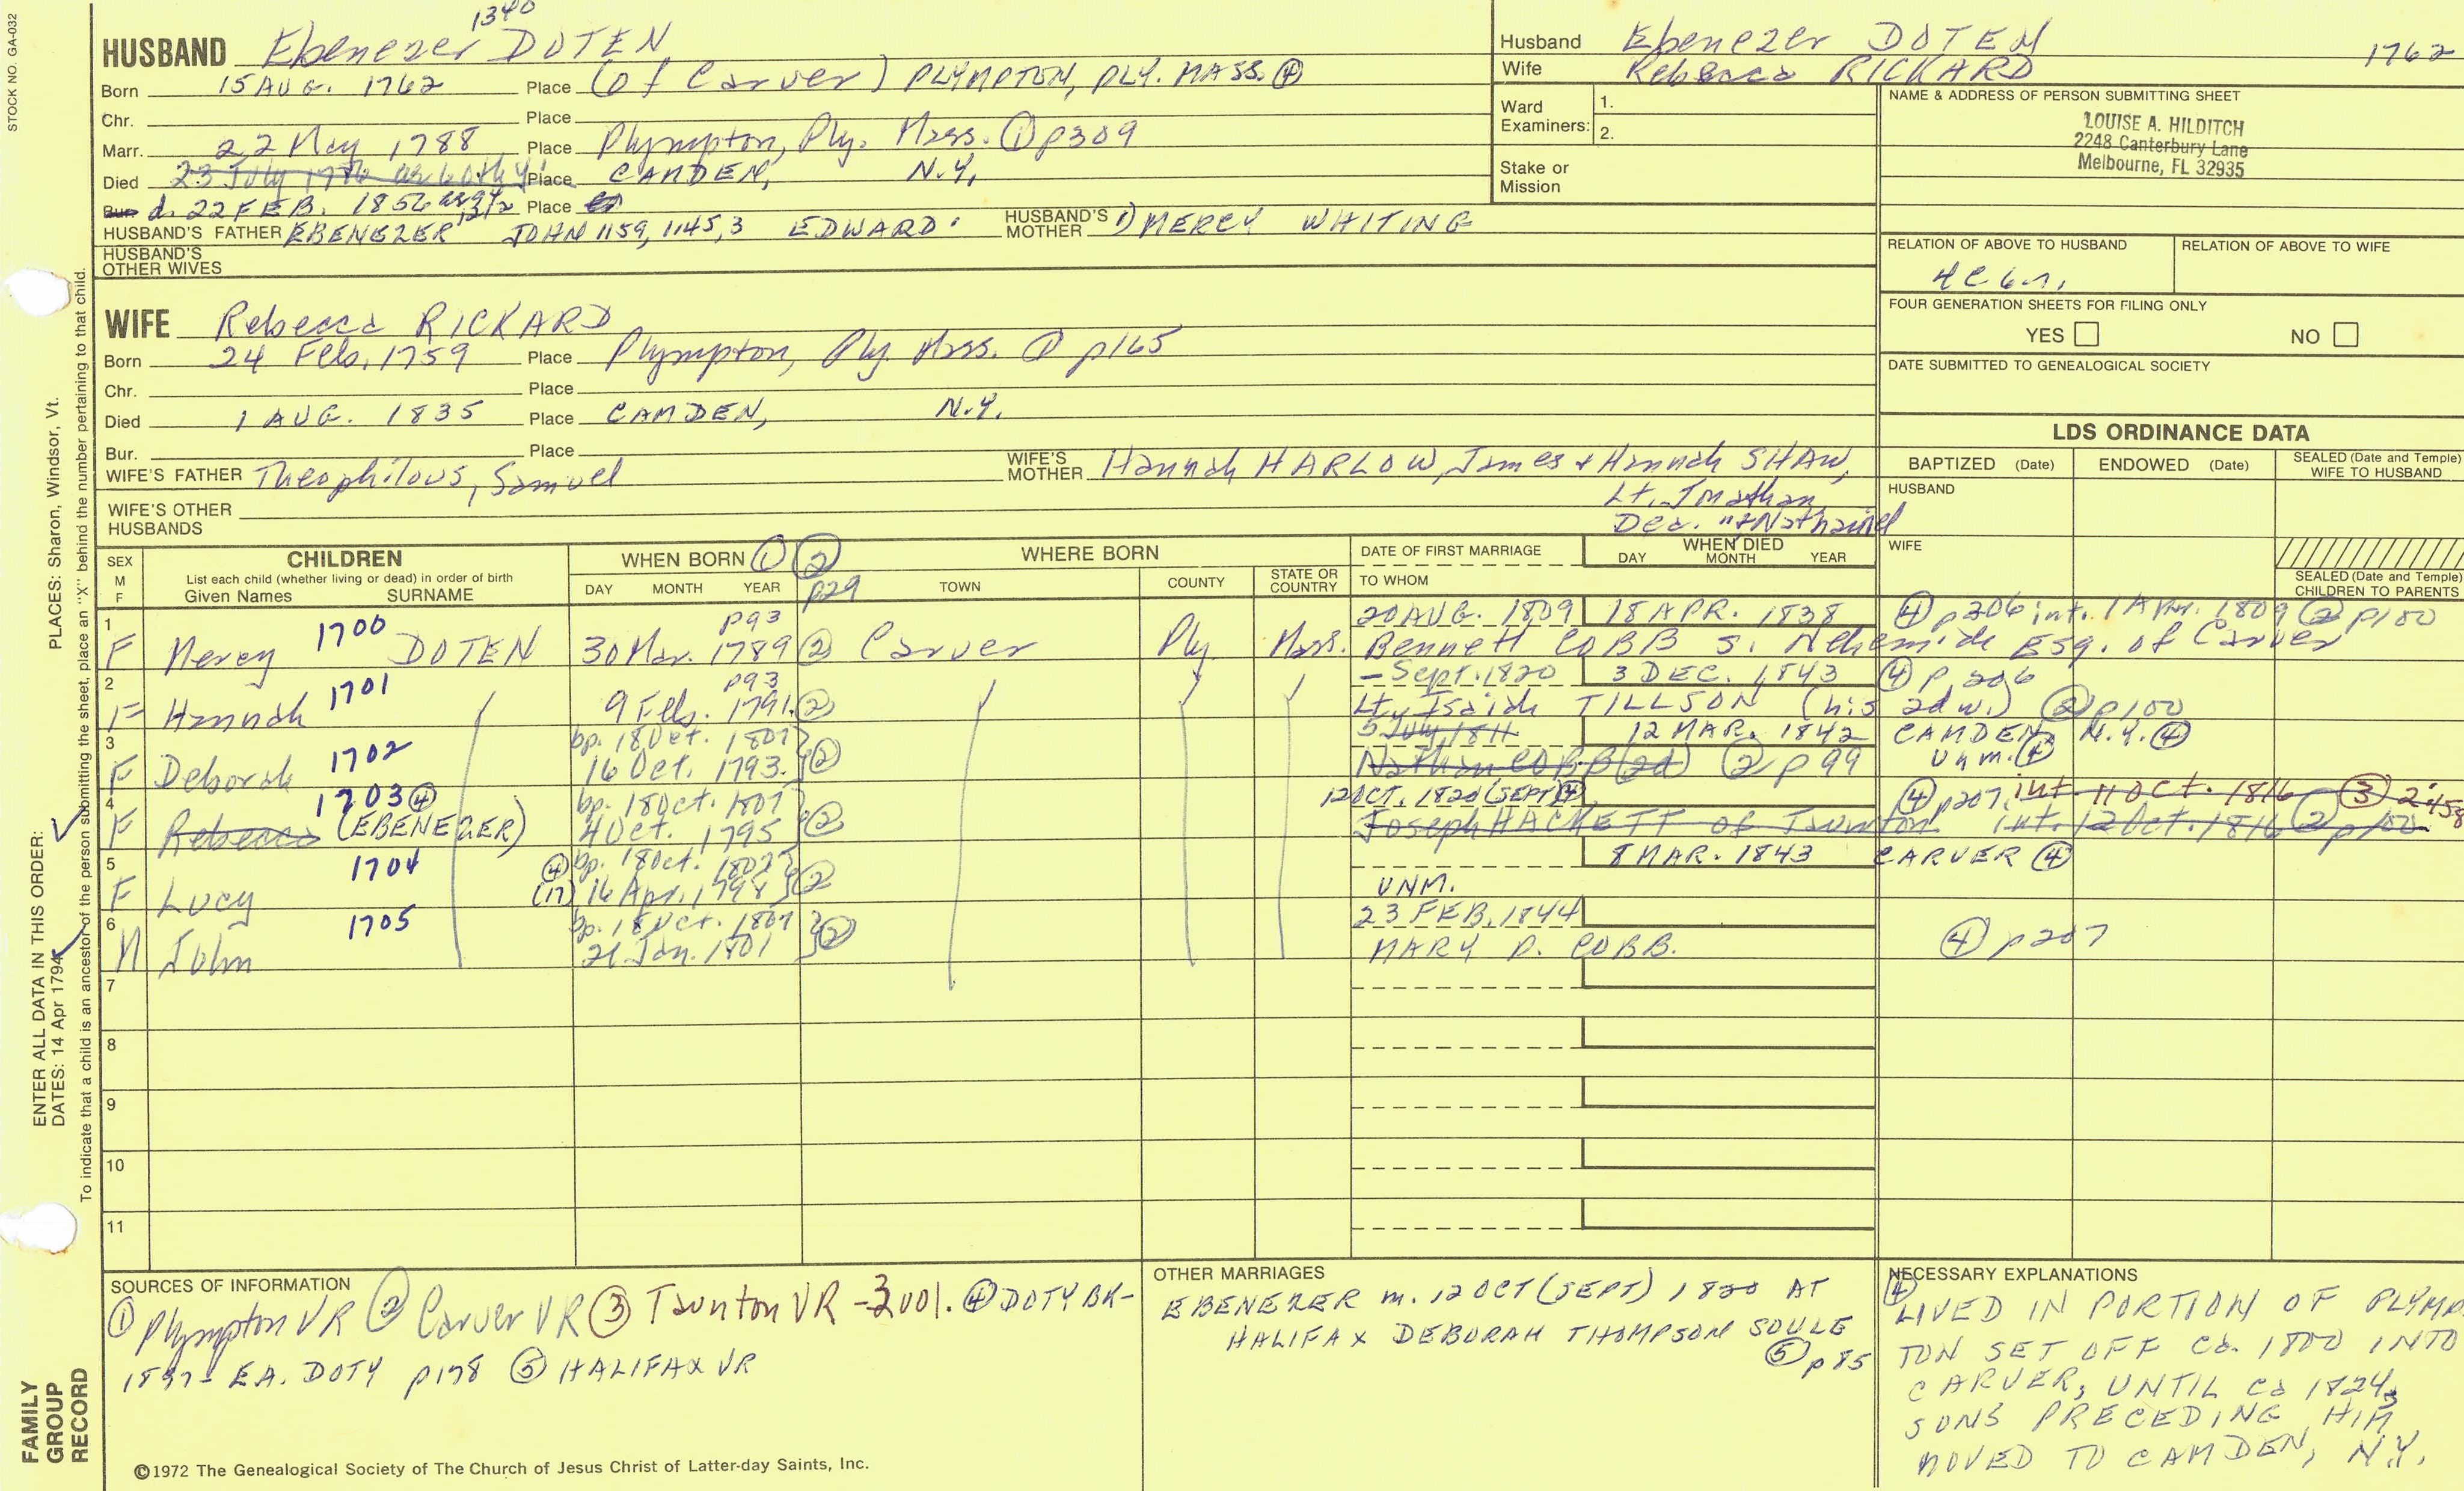 STOCK NO. GA-032
1340
HUSBAND Ebenezer DOTEN
Born 15 AUG. 1762 Place (of Carver) PLYMPTON, PLY. MASS. ④
Chr. Place
Marr. 22 May 1788 Place Plympton, Ply. Mass. ① p309
Died 23 July Place CAMDEN, N.Y.
Bur. d. 22 FEB. 1856 Place
HUSBAND'S FATHER EBENEZER JOHN 1159, 1145, 3 EDWARD HUSBAND'S MOTHER 1) MERCY WHITING
HUSBAND'S OTHER WIVES
WIFE Rebecca RICKARD
Born 24 Feb. 1759 Place Plympton, Ply. Mass. ① p165
Chr. Place
Died 1 AUG. 1835 Place CAMDEN, N.Y.
Bur. Place
WIFE'S FATHER Theophilous, Samuel WIFE'S MOTHER Hannah HARLOW, James & Hannah SHAW,
Lt. Jonathan,
Dea. "& Nathaniel
WIFE'S OTHER HUSBANDS
Husband Ebenezer DOTEN 1762
Wife Rebecca RICKARD
Ward Examiners: 1.
2.
Stake or Mission
NAME & ADDRESS OF PERSON SUBMITTING SHEET
LOUISE A. HILDITCH
2248 Canterbury Lane
Melbourne, FL 32935
RELATION OF ABOVE TO HUSBAND RELATION OF ABOVE TO WIFE
4C6r.
FOUR GENERATION SHEETS FOR FILING ONLY
YES NO
DATE SUBMITTED TO GENEALOGICAL SOCIETY
LDS ORDINANCE DATA
BAPTIZED (Date) ENDOWED (Date) SEALED (Date and Temple) WIFE TO HUSBAND
HUSBAND
WIFE
SEALED (Date and Temple) CHILDREN TO PARENTS
SEX M F CHILDREN WHEN BORN ① ② WHERE BORN DATE OF FIRST MARRIAGE WHEN DIED
List each child (whether living or dead) in order of birth
Given Names SURNAME DAY MONTH YEAR p29 TOWN COUNTY STATE OR COUNTRY TO WHOM DAY MONTH YEAR
1 1700 p93 20 AUG. 1809 18 APR. 1838 ④ p206 int. 1 Apr. 1809 ② p100
F Mercy DOTEN 30 Mar. 1789 ② Carver Ply. Mass. Bennett COBB s. Nehemiah Esq. of Carver
2 1701 p93 - Sept. 1820 3 DEC. 1843 ④ p 206
F Hannah 9 Feb. 1791 ② Lt. Isaiah TILLSON (his 2d w.) ② p100
3 1702 bp. 18 Oct. 1807 5 July 1811 12 MAR. 1842 CAMDEN, N.Y. ④
F Deborah 16 Oct. 1793 ② Nathan COBB (2d) ② p99 unm. ④
4 1703 ④ bp. 18 Oct. 1807 12 OCT. 1820 (SEPT) ④ ④ p207, int 11 OCT. 1816 ③ 2:158
F Rebecca (EBENEZER) 4 Oct. 1795 ② Joseph HACKETT of Taunton int. 12 Oct. 1816 ② p100
5 1704 ④ bp. 18 Oct. 1807 8 MAR. 1843 CARVER ④
F Lucy (17) 16 Apr. 1798 ② UNM.
6 1705 bp. 18 Oct. 1807 23 FEB. 1844
M John 21 Jan. 1801 ② MARY P. COBB. ④ p207
7
8
9
10
11
SOURCES OF INFORMATION
① Plympton VR ② Carver VR ③ Taunton VR - 3 vol. ④ DOTY BK-
1897 - EA. DOTY p178 ⑤ HALIFAX VR
OTHER MARRIAGES
EBENEZER m. 12 OCT (SEPT) 1820 AT
HALIFAX DEBORAH THOMPSON SOULE
⑤ p85
NECESSARY EXPLANATIONS
④ LIVED IN PORTION OF PLYMP
TON SET OFF Ca. 1800 INTO
CARVER, UNTIL Ca 1824,
SONS PRECEDING HIM
MOVED TO CAMDEN, N.Y.
©1972 The Genealogical Society of The Church of Jesus Christ of Latter-day Saints, Inc.
FAMILY GROUP RECORD
ENTER ALL DATA IN THIS ORDER:
DATES: 14 Apr 1794
PLACES: Sharon, Windsor, Vt.
To indicate that a child is an ancestor of the person submitting the sheet, place an "X" behind the number pertaining to that child.